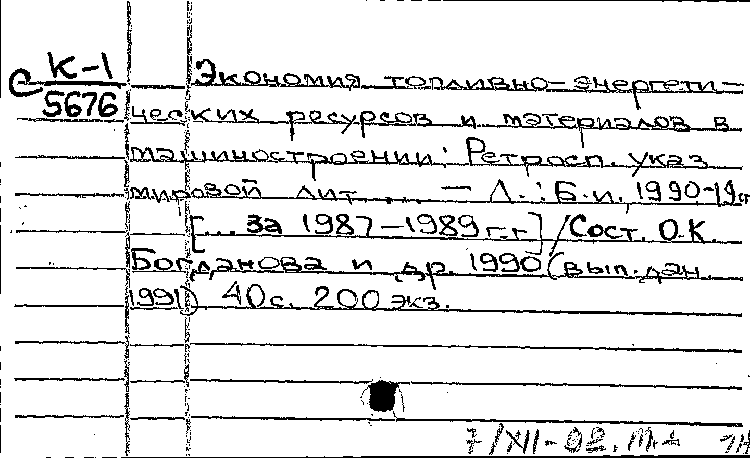 С К-1
5676
Экономия топливно-энергети-
ческих ресурсов и материалов в
машиностроении: Ретросп. указ.
мировой лит.... — Л.: Б.и., 1990-19
[... за 1987-1989 г.г.] / Сост. О.К.
Богданова и др. 1990 (вып.дан.
1991). 40с. 200 экз.
7/XII-